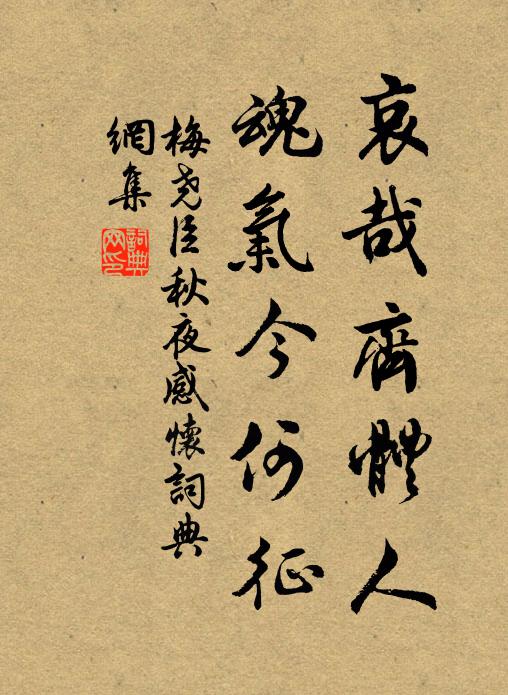 哀哉齊體人
魂氣今何征
梅堯臣秋夜感懷詞典
網集
詞典
网印